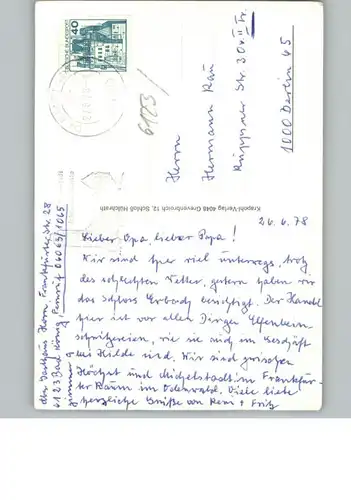 DEUTSCHE BUNDESPOST 40
6123/
Herrn
Hermann Rau
Ruppiner Str. 30v. II Tr.
1000 Berlin 65
Krapohl-Verlag 4048 Grevenbroich 12, Schloß Hülchrath
26.6.78
Lieber Opa, lieber Papa!
Wir sind hier viel unterwegs, trotz
des schlechten Wetter, gestern haben wir
das Schloss Erbach besichtigt. Der Handel
hier ist vor allen Dingen Elfenbein-
schnitzereien, wie sie auch im Geschäft
bei Hilde sind. Wir sind zwischen
Höchst und Michelstadt im Frankfur-
ter Raum im Odenwald. Viele liebe
herzliche Grüße von Reni + Fritz
Gasthaus Horn, Frankfurter Str. 28
6123 Bad König, 06063/1065